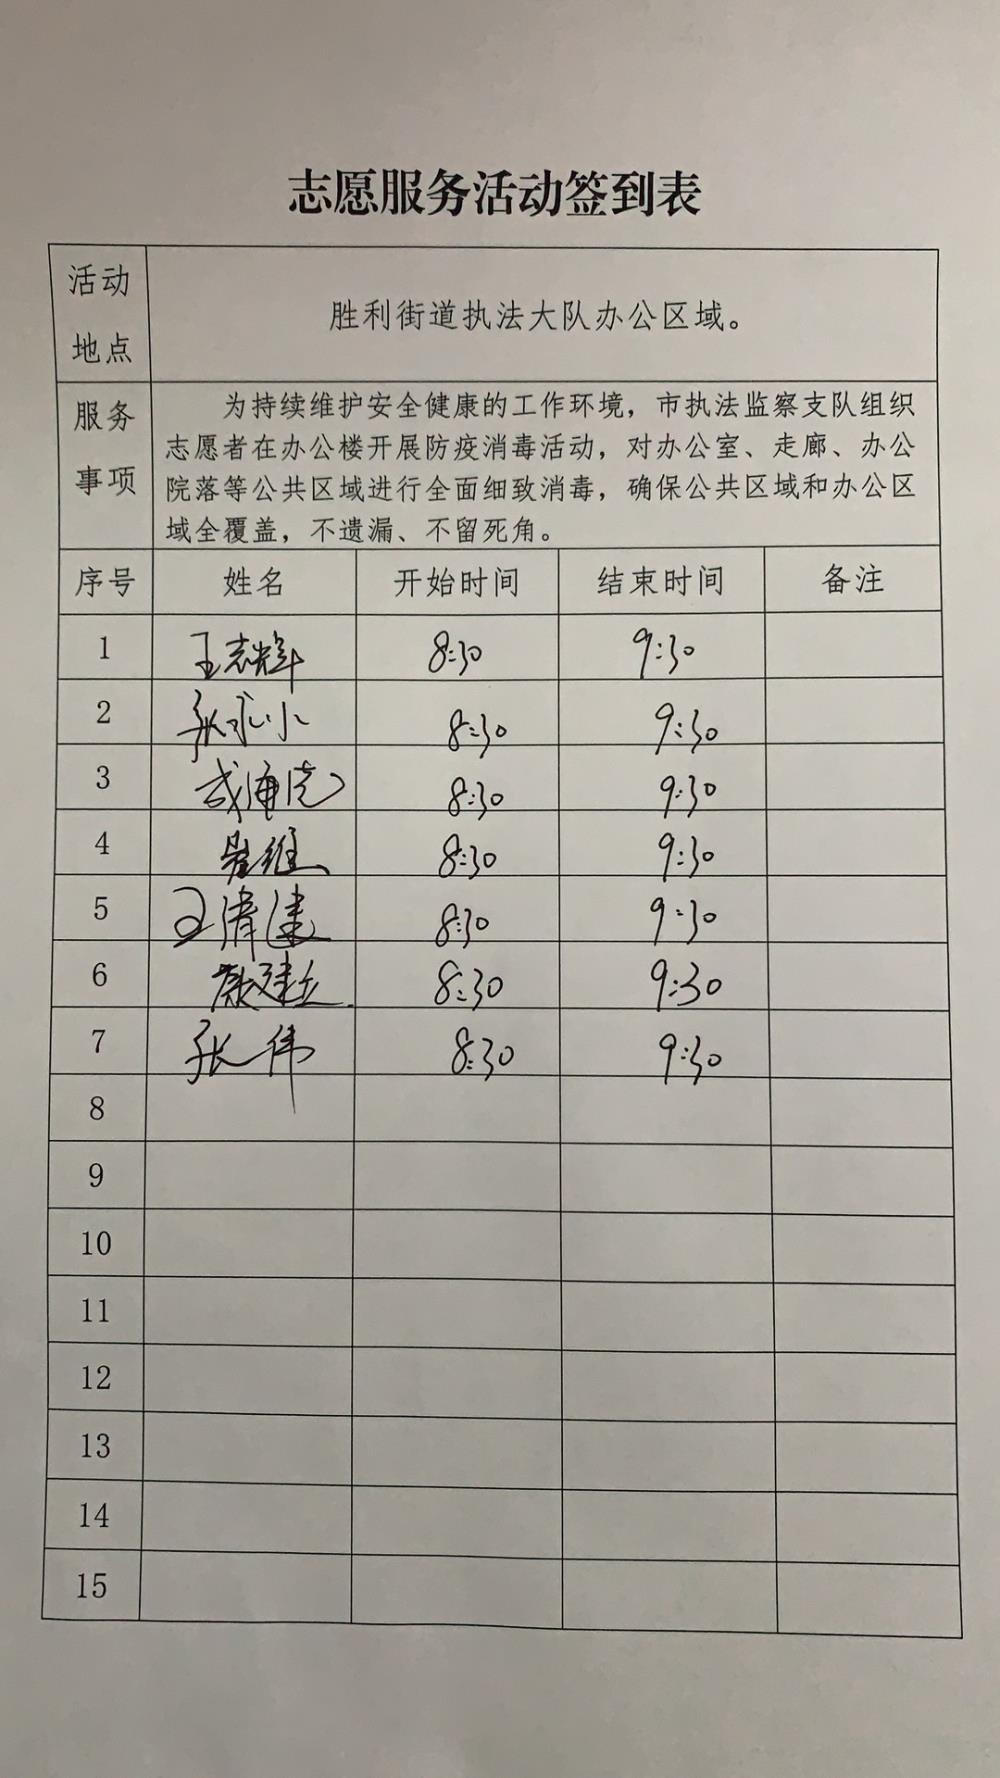 志愿服务活动签到表
活动地点 胜利街道执法大队办公区域。
服务事项 为持续维护安全健康的工作环境，市执法监察支队组织
志愿者在办公楼开展防疫消毒活动，对办公室、走廊、办公
院落等公共区域进行全面细致消毒，确保公共区域和办公区
域全覆盖，不遗漏、不留死角。
序号 姓名 开始时间 结束时间 备注
1 王志辉 8:30 9:30
2 8:30 9:30
3 8:30 9:30
4 8:30 9:30
5 王清建 8:30 9:30
6 康建立 8:30 9:30
7 张伟 8:30 9:30
8
9
10
11
12
13
14
15